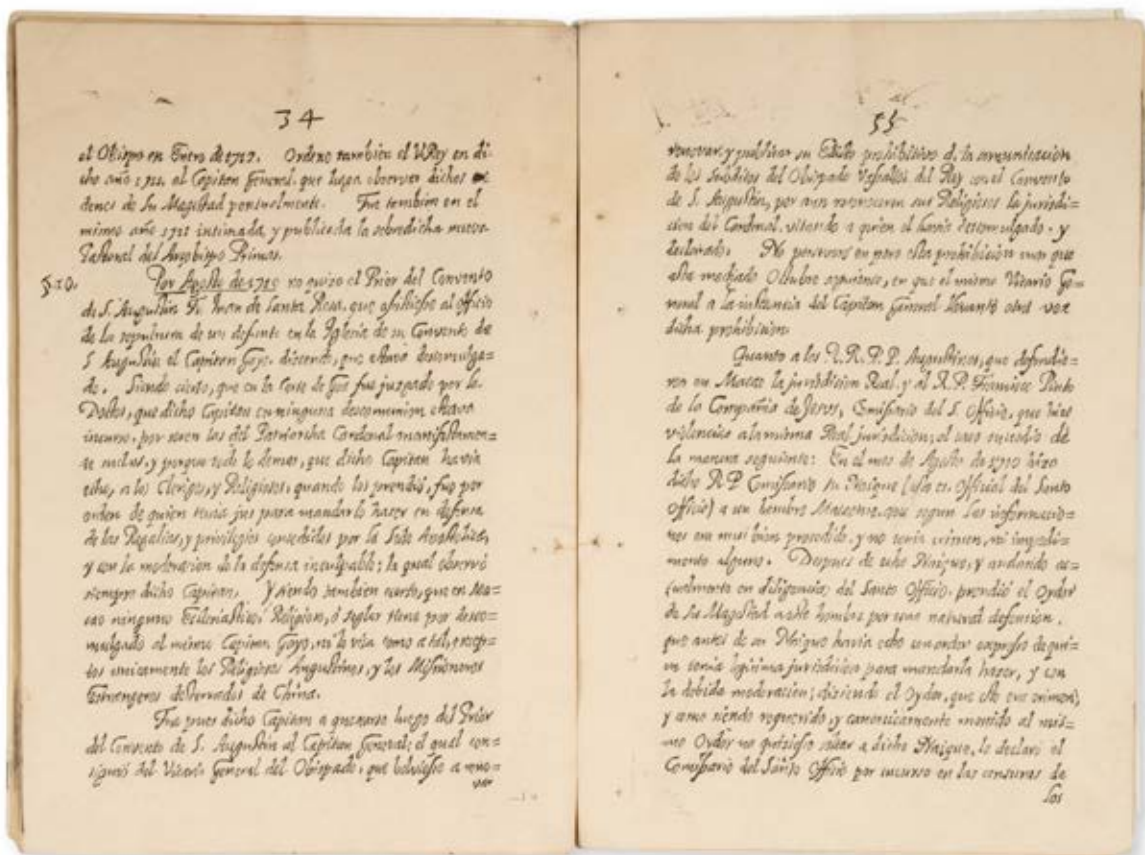 34
el Obispo en Enero de 1717. Ordeno tambien el V.Rey en di-
cho año 1711. al Capitan General, que haga observar dichos or
denes de Su Magestad puntualmente. Fue tambien en el
mismo año 1711 intimada, y publicada la sobredicha nueva
Pastoral del Arzobispo Primas.
§.10. Por Agosto de 1715 no quizo el Prior del Convento
de S. Augustin Fr. Juan de Santa Rosa, que assistiesse al Officio
de la sepultura de un defunto en la Iglesia de su Convento de
S. Augustin el Capitan Gayo, disendo, que estava descomulga-
do. Siendo cierto, que en la Corte de Goa fue juzgado por los
Doctos, que dicho Capitan en ninguna descomunion estava
incurso, por seren las del Patriarcha Cardenal manifestamen-
te nulas, y porque todo lo demas, que dicho Capitan havia
echo, a los Clerigos, y Religiosos, quando los prendió, fue por
orden de quien tenia jus para mandarlo hazer en defensa
de las Regalias, y privilegios concedidos por la Sede Apostolica,
y con la moderacion de la defensa inculpable; la qual observó
siempre dicho Capitan. Y siendo tambien cierto, que en Ma=
cao ninguno Ecleziastico, Religioso, ó seglar tiene por desco=
mulgado al mismo Capitan Gayo, ni le vita como a tal, excep-
tos unicamente los Religiosos Augustinos, y los Missioneros
Estrangeros desterrados de China.
Fue pues dicho Capitan a quexarse luego del Prior
del Convento de S. Augustin al Capitan General; el qual con=
siguió del Vicario General del Obispado, que bolviesse a reno=
var
35
renovar, y publicar su Edicto prohibitivo d. la comunicacion
de los subditos del Obispado Vassallos del Rey con el Convento
de S. Augustin, por aun reconoceren sus Religiosos la jurisdi=
cion del Cardenal, vitando a quien el havia descomulgado, y
declarado. No perseveró en pero esta prohibicion mas que
asta mediado Octubre siguiente, en que el mismo Vicario Ge=
neral a la instancia del Capitan General levantó otra vez
dicha prohibicion.
Quanto a los R.R.P.P. Augustinos, que defendie=
ron en Macao la jurisdicion Real, y al R.P. Francisco Pinto
de la Compañia de Jesus, Comissario del S. Officio, que hizo
violencias a la misma Real jurisdicion; el caso sucedio de
la manera seguiente: En el mes de Agosto de 1712 hizo
dicho R.P. Comissario su Naique (esto es, Official del Santo
Officio) a un hombre Macaense, que segun las informacio=
nes era mui bien procedido, y no tenia crimen, ni impedi=
mento alguno. Despues de echo Naique, y andando ac=
tualmente en diligencias del Santo Officio, prendió el Oydor
de Su Magestad a este hombre por una natural defension,
que antes de ser Naique havia echo con orden expresso de qui=
en tenia legitima jurisdicion para mandarla hazer, y con
la debida moderacion; diziendo el Oydor, que esto era crimen;
y como siendo requerido, y canonicamente monido al mis=
mo Oydor no quiziesse soltar a dicho Naique, lo declaró el
Comissario del Santo Officio por incurso en las censuras de
los